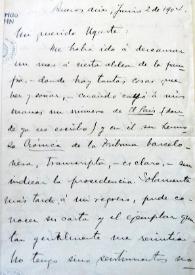 Buenos Aires, Junio 2 de 1904.
Mi querido Ugarte:
Me había ido á descansar
un mes á cierta aldea de la pam-
pa, donde hay tantas cosas que
ver y soñar, y cuando cayó á mis
manos un número de El País (don-
de ya no escribo) y en él su hermo-
sa Crónica de la Tribuna barcelo-
nesa, transcripta, es claro, sin
indicar la procedencia. Solamente
más tarde, á mi regreso, pude co-
nocer su carta y el ejemplar que
tan gentilmente me remitía.
no tengo sino sentimientos